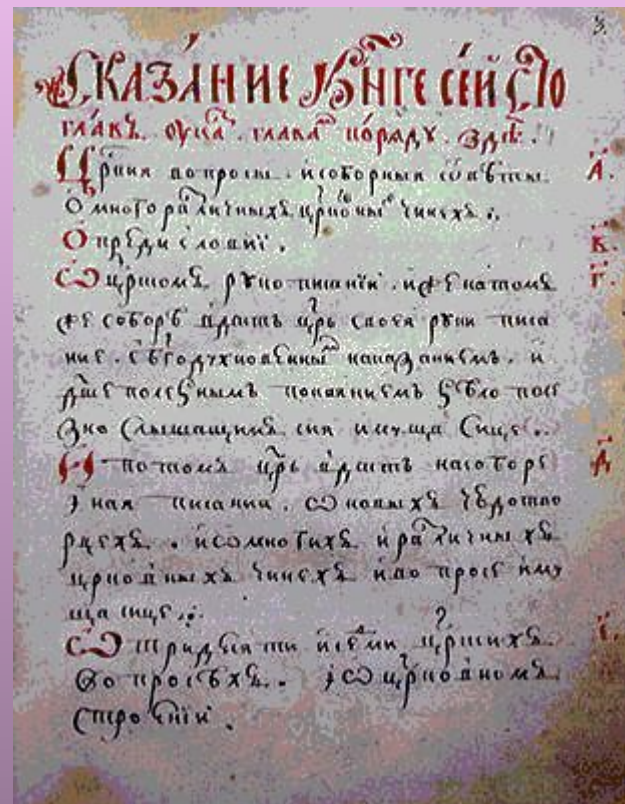 З҃.
Сказа́ние Кни́ге се́й, Сто
главъ. оуказъ. главамъ по́ряду. здѣ.
Цркия вопросы. и соборныя ѿвѣты А҃.
О многоразличныхъ црковныхъ чинехъ.
О предисловии. В҃.
Ѡ црскомъ рукописании. и же на томъ Г҃.
же соборѣ вдастъ црь своея руки писа
ние. з бгодухновенным наказаниемъ. и
дше полезнымъ покаяниемъ ѕѣло полѣ
зно слышащимъ сия имуща сице.
И потомъ црь вдастъ на соборе Д҃
иная писания. ѡ новыхъ чюдотво
рцехъ. и ѡ многихъ и различныхъ
црковныхъ чинехъ и вопросе иму
ща сице.
Ѡ тридесяти и семи црскихъ Е҃.
вопросѣхъ. и ѡ црковномъ
строении.